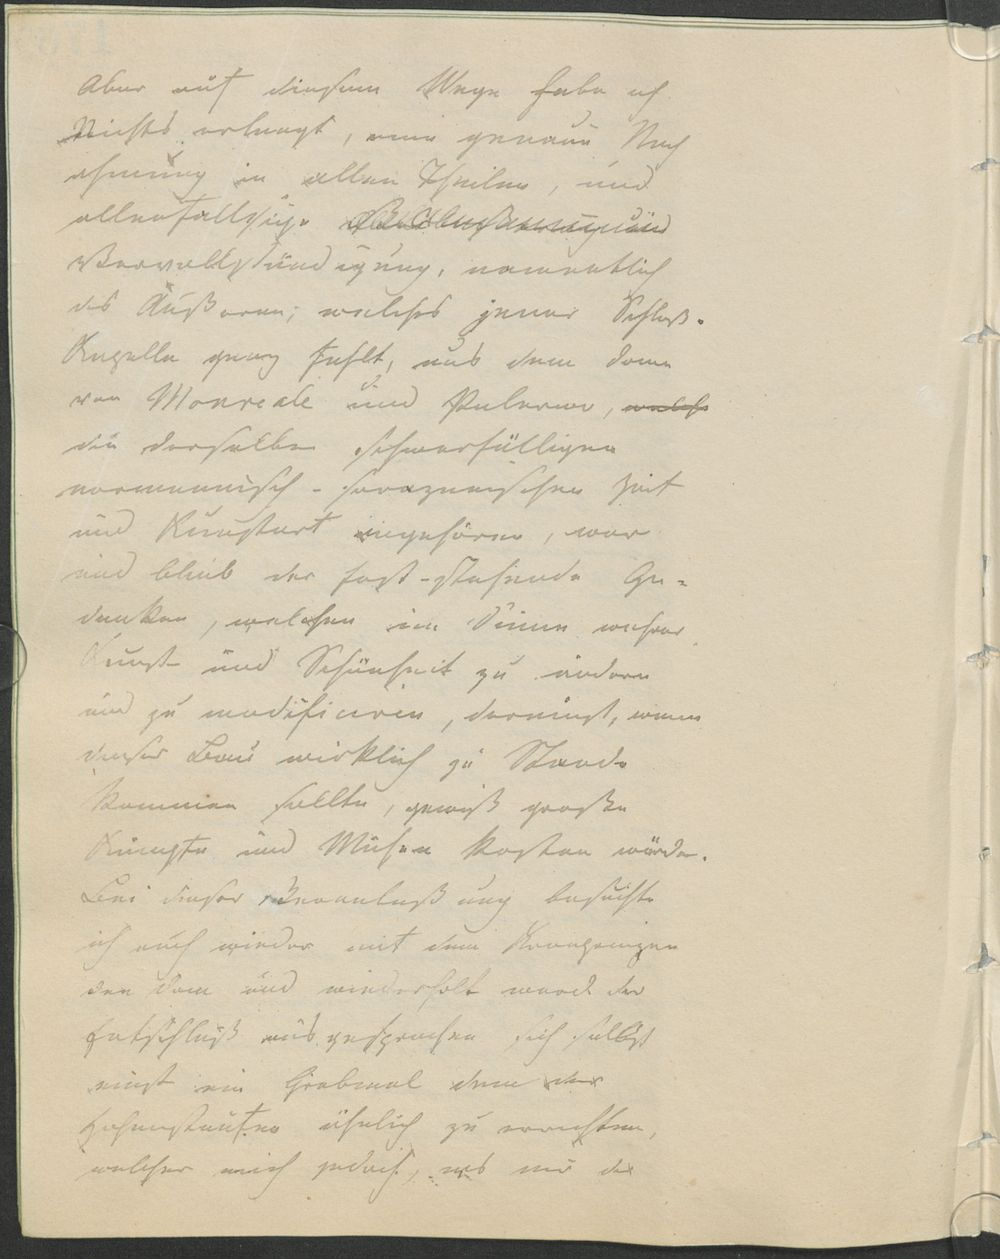 Aber auf diesem Wege habe ich
Nichts erlangt, eine genaue Nach
ahmung in allen Theilen, und
allenfallsige
Vervollständigung, namentlich
des Äußeren, welches jener Schloß-
Kapelle ganz fehlt, aus dem Dome
von Monreale und Palermo,
die derselben schwerfälligen
normannisch-sarazenischen Zeit
und Kunstart angehören, war
und blieb der fest-stehende Ge-
danken, welchen im Sinne wahrer
Kunst und Schönheit zu ändern
und zu modificiren, dereinst, wenn
dieser Bau wirklich zu Stande
kommen sollte, gewiß große
Kämpfe und Mühen kosten würde.
Bei dieser Veranlaßung besuchte
ich auch wieder mit dem Kronprinzen
den Dom und wiederholt ward der
Entschluß ausgesprochen sich selbst
einst ein Grabmal dem der
Hohenstaufen ähnlich zu errichten,
welcher mich jedoch, was mir die